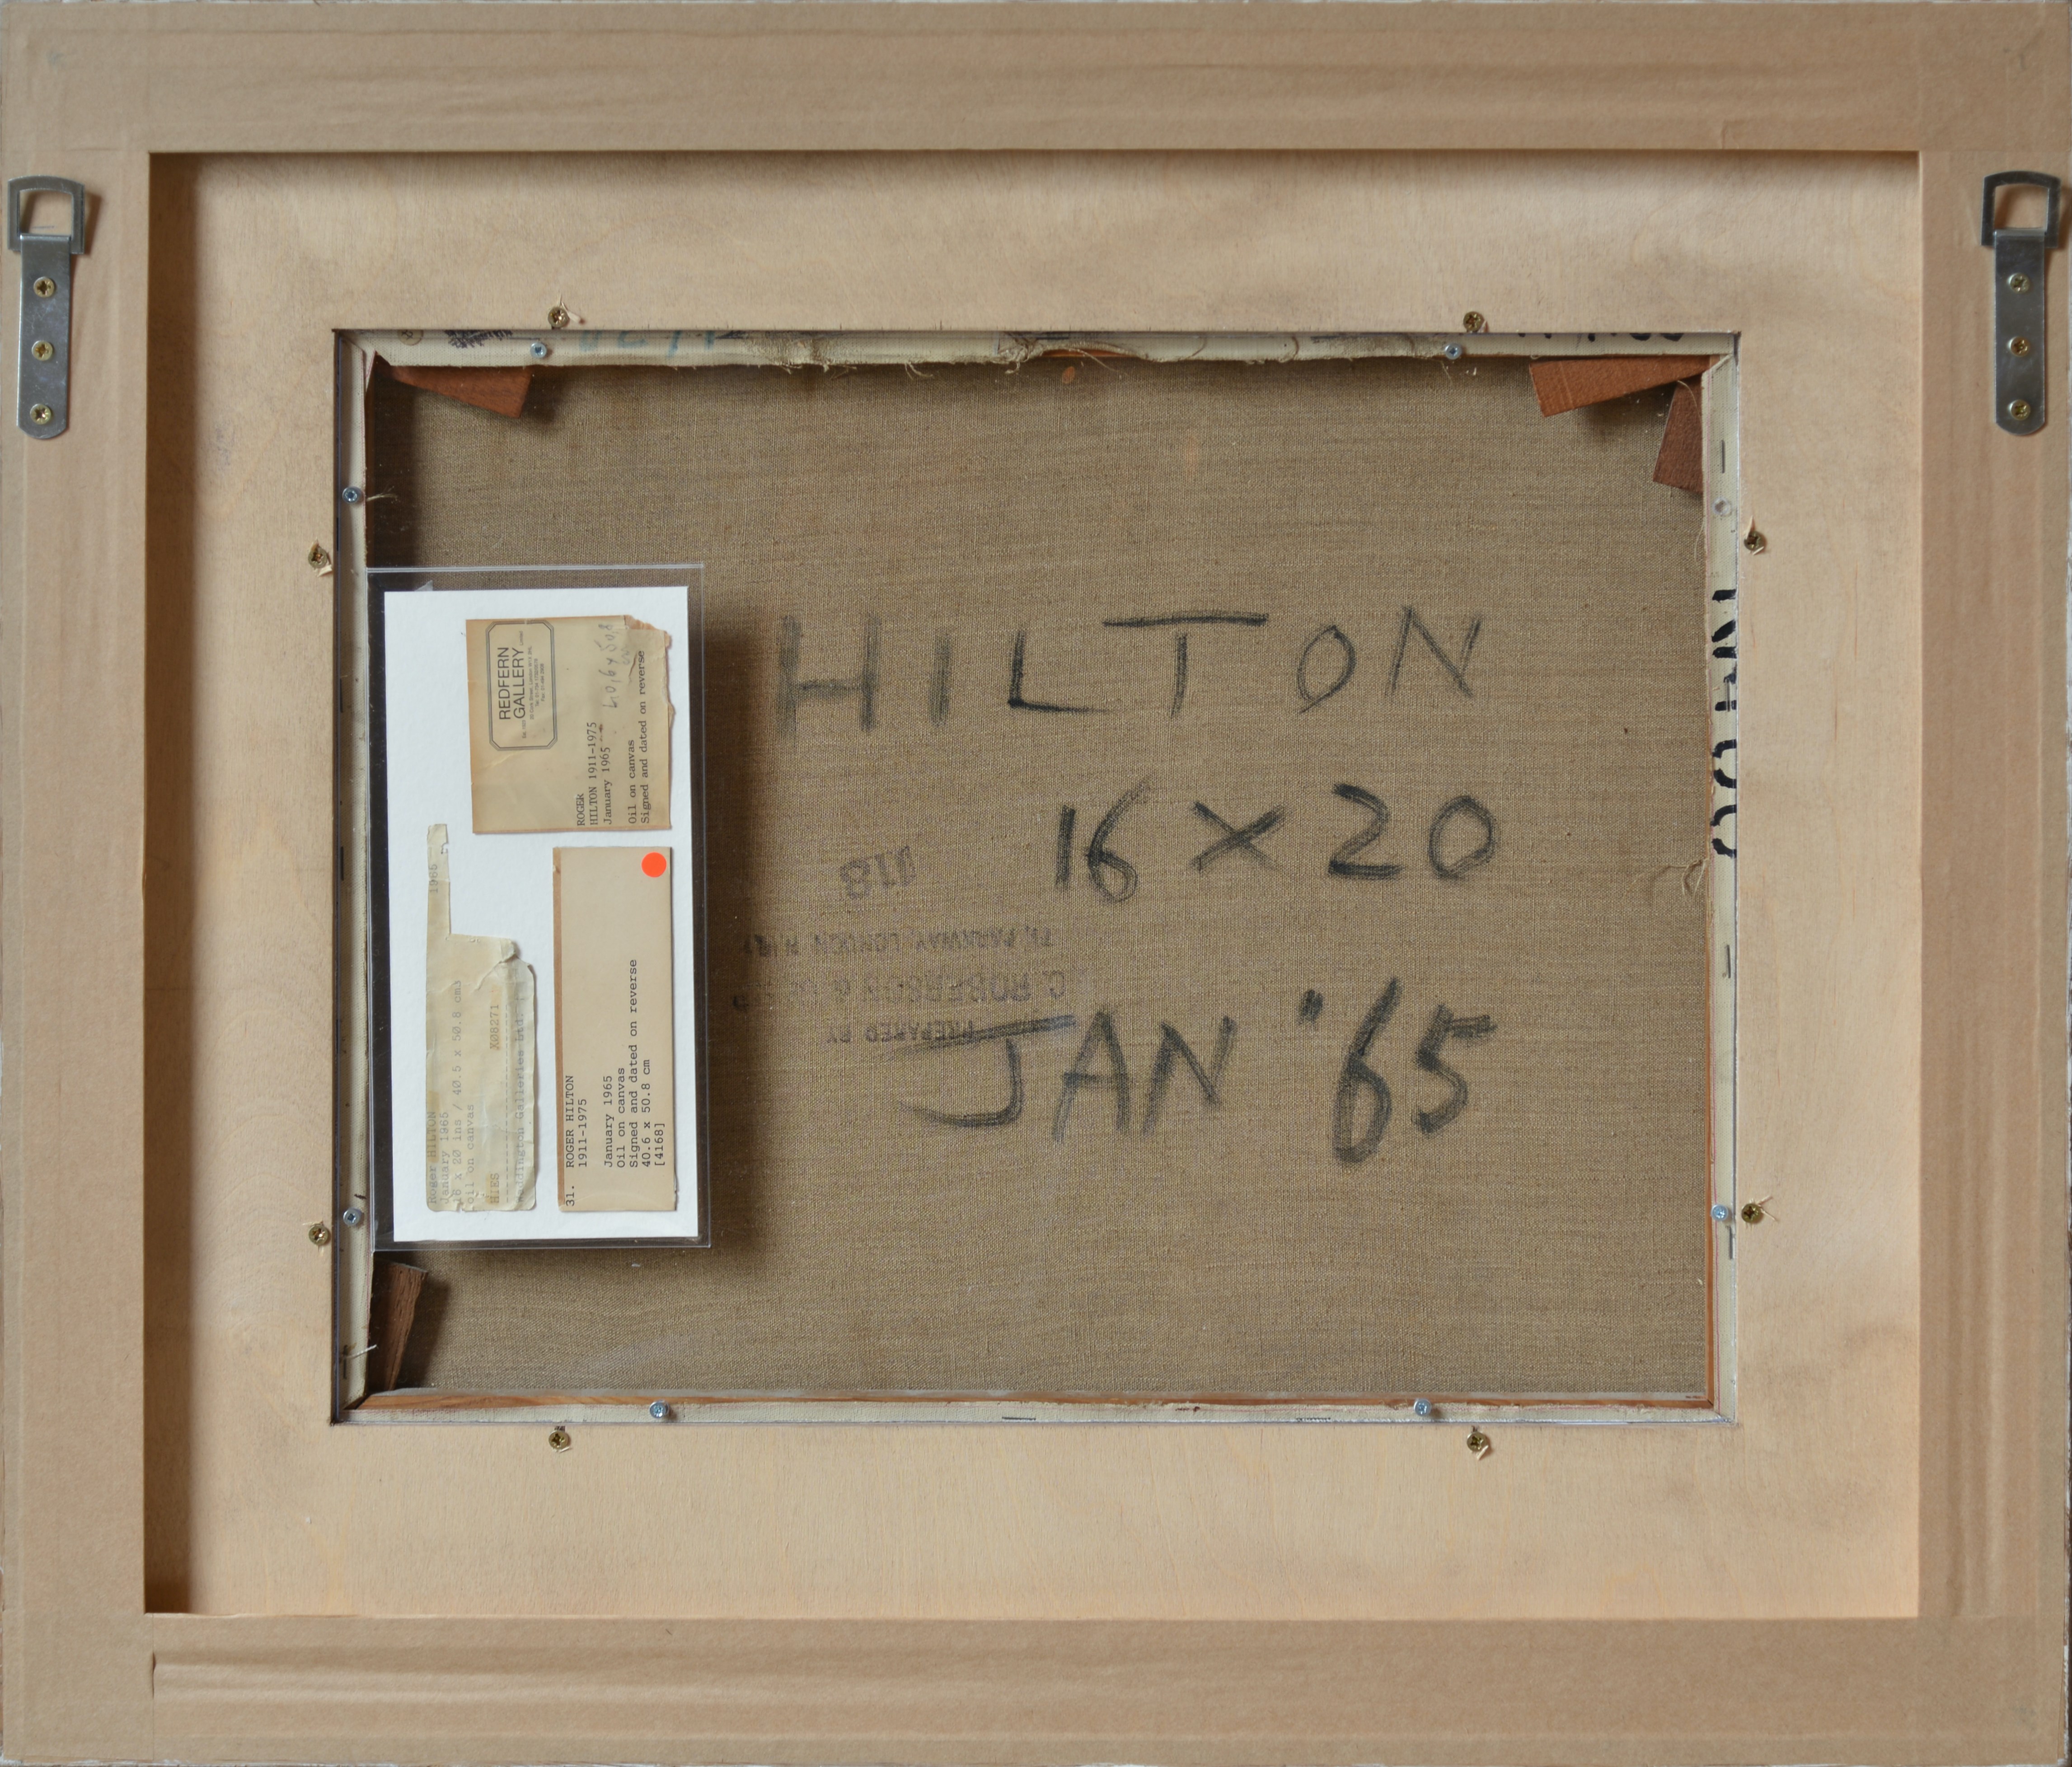 HILTON
16 x 20
JAN '65
REDFERN
GALLERY
ROGER
HILTON 1911-1975
January 1965
Oil on canvas
Signed and dated on reverse
40,6 x 50,8
31. ROGER HILTON
1911-1975
January 1965
Oil on canvas
Signed and dated on reverse
40.6 x 50.8 cm
[4168]
1965
Roger HILTON
January 1965
16 x 20 ins / 40.5 x 50.8 cms
oil on canvas
X08271
Waddington Galleries Ltd.
PREPARED BY
C. ROBERSON &
71, PARKWAY, LONDON